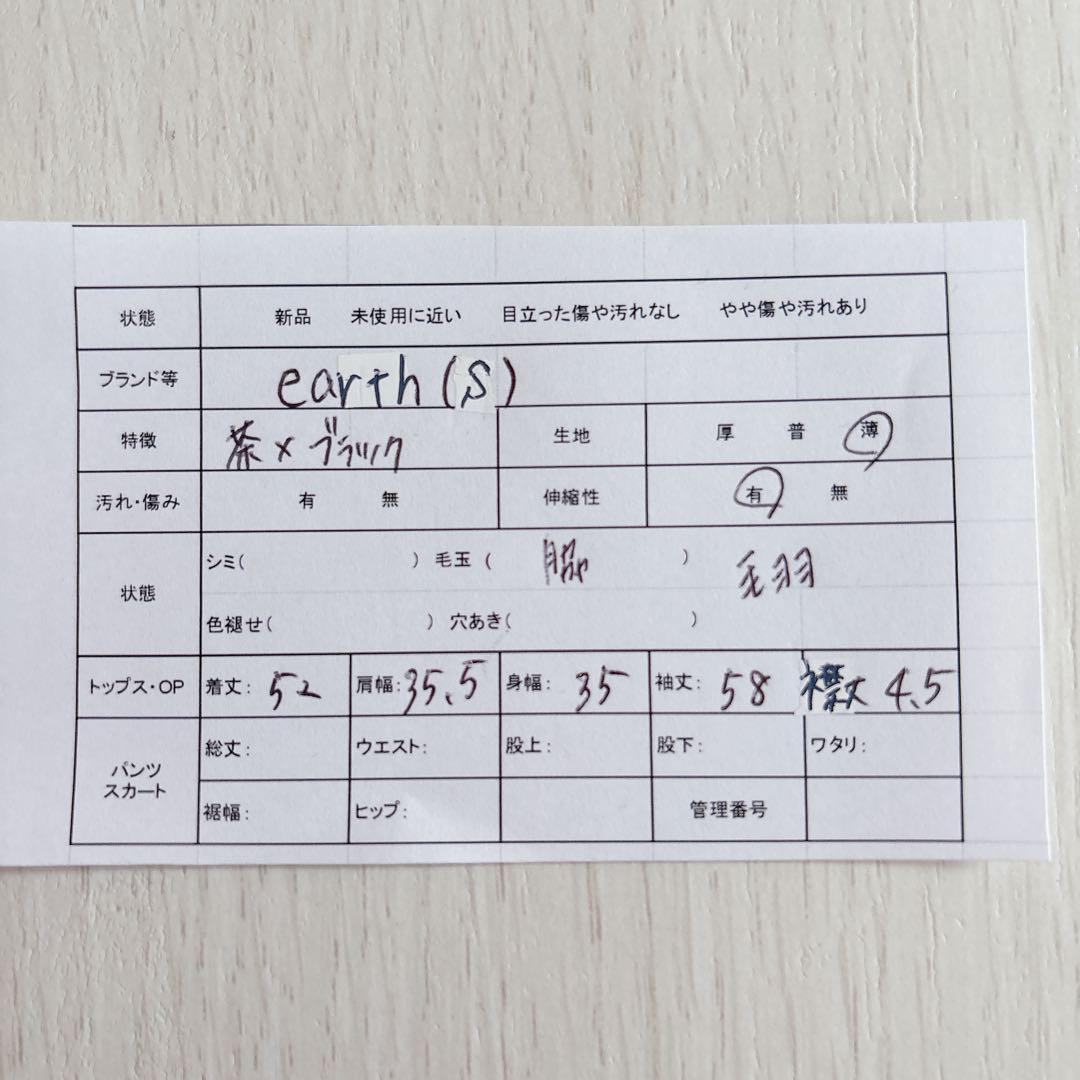 状態 新品 未使用に近い 目立った傷や汚れなし やや傷や汚れあり
ブランド等 earth (S)
特徴 茶×ブラック 生地 厚 普 薄
汚れ・傷み 有 無 伸縮性 有 無
状態 シミ( ) 毛玉 ( 脇 ) 毛羽
色褪せ( ) 穴あき( )
トップス・OP 着丈: 52 肩幅: 35.5 身幅: 35 袖丈: 58 襟丈 4.5
パンツ スカート 総丈: ウエスト: 股上: 股下: ワタリ:
裾幅: ヒップ: 管理番号